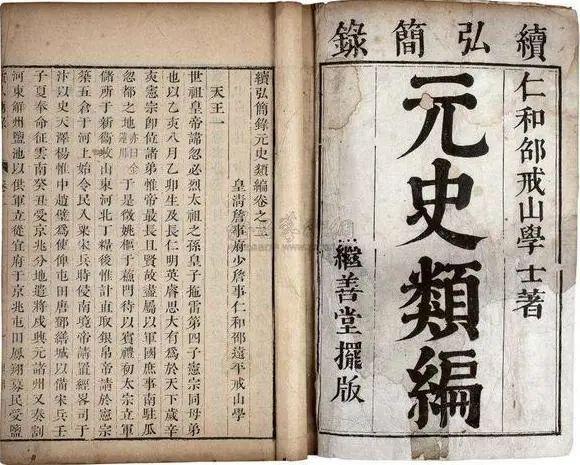 續弘簡錄
仁和邵戒山學士著
元史類編
繼善堂擺版
續弘簡錄元史類編卷之二
皇清詹事府少詹事仁和邵遠平戒山學
天王一
世祖皇帝諱忽必烈太祖之孫皇子拖雷第四子憲宗同母弟
也以乙亥八月乙卯生及長仁明英睿思大有為於天下歲辛
亥憲宗即位諸弟惟帝最長且賢故盡屬以軍國庶事南駐瓜
忽都之地亦曰金蓮川于是徵姚樞于蘇門待以賓禮初太宗立軍
儲所于新衛收山東河北丁糧後惟計直取銀帛帝請於憲宗
築五倉于河上始令民入粟宋兵時侵南境帝請置經畧司于
汴以史天澤楊惟中趙璧為使俾屯田唐鄧繕城以備宋兵壬
子夏奉命征雲南癸丑受京兆分地遣將戍興元諸州又奏割
河東解州鹽池以供軍立從宜府于京兆屯田鳳翔募民受鹽